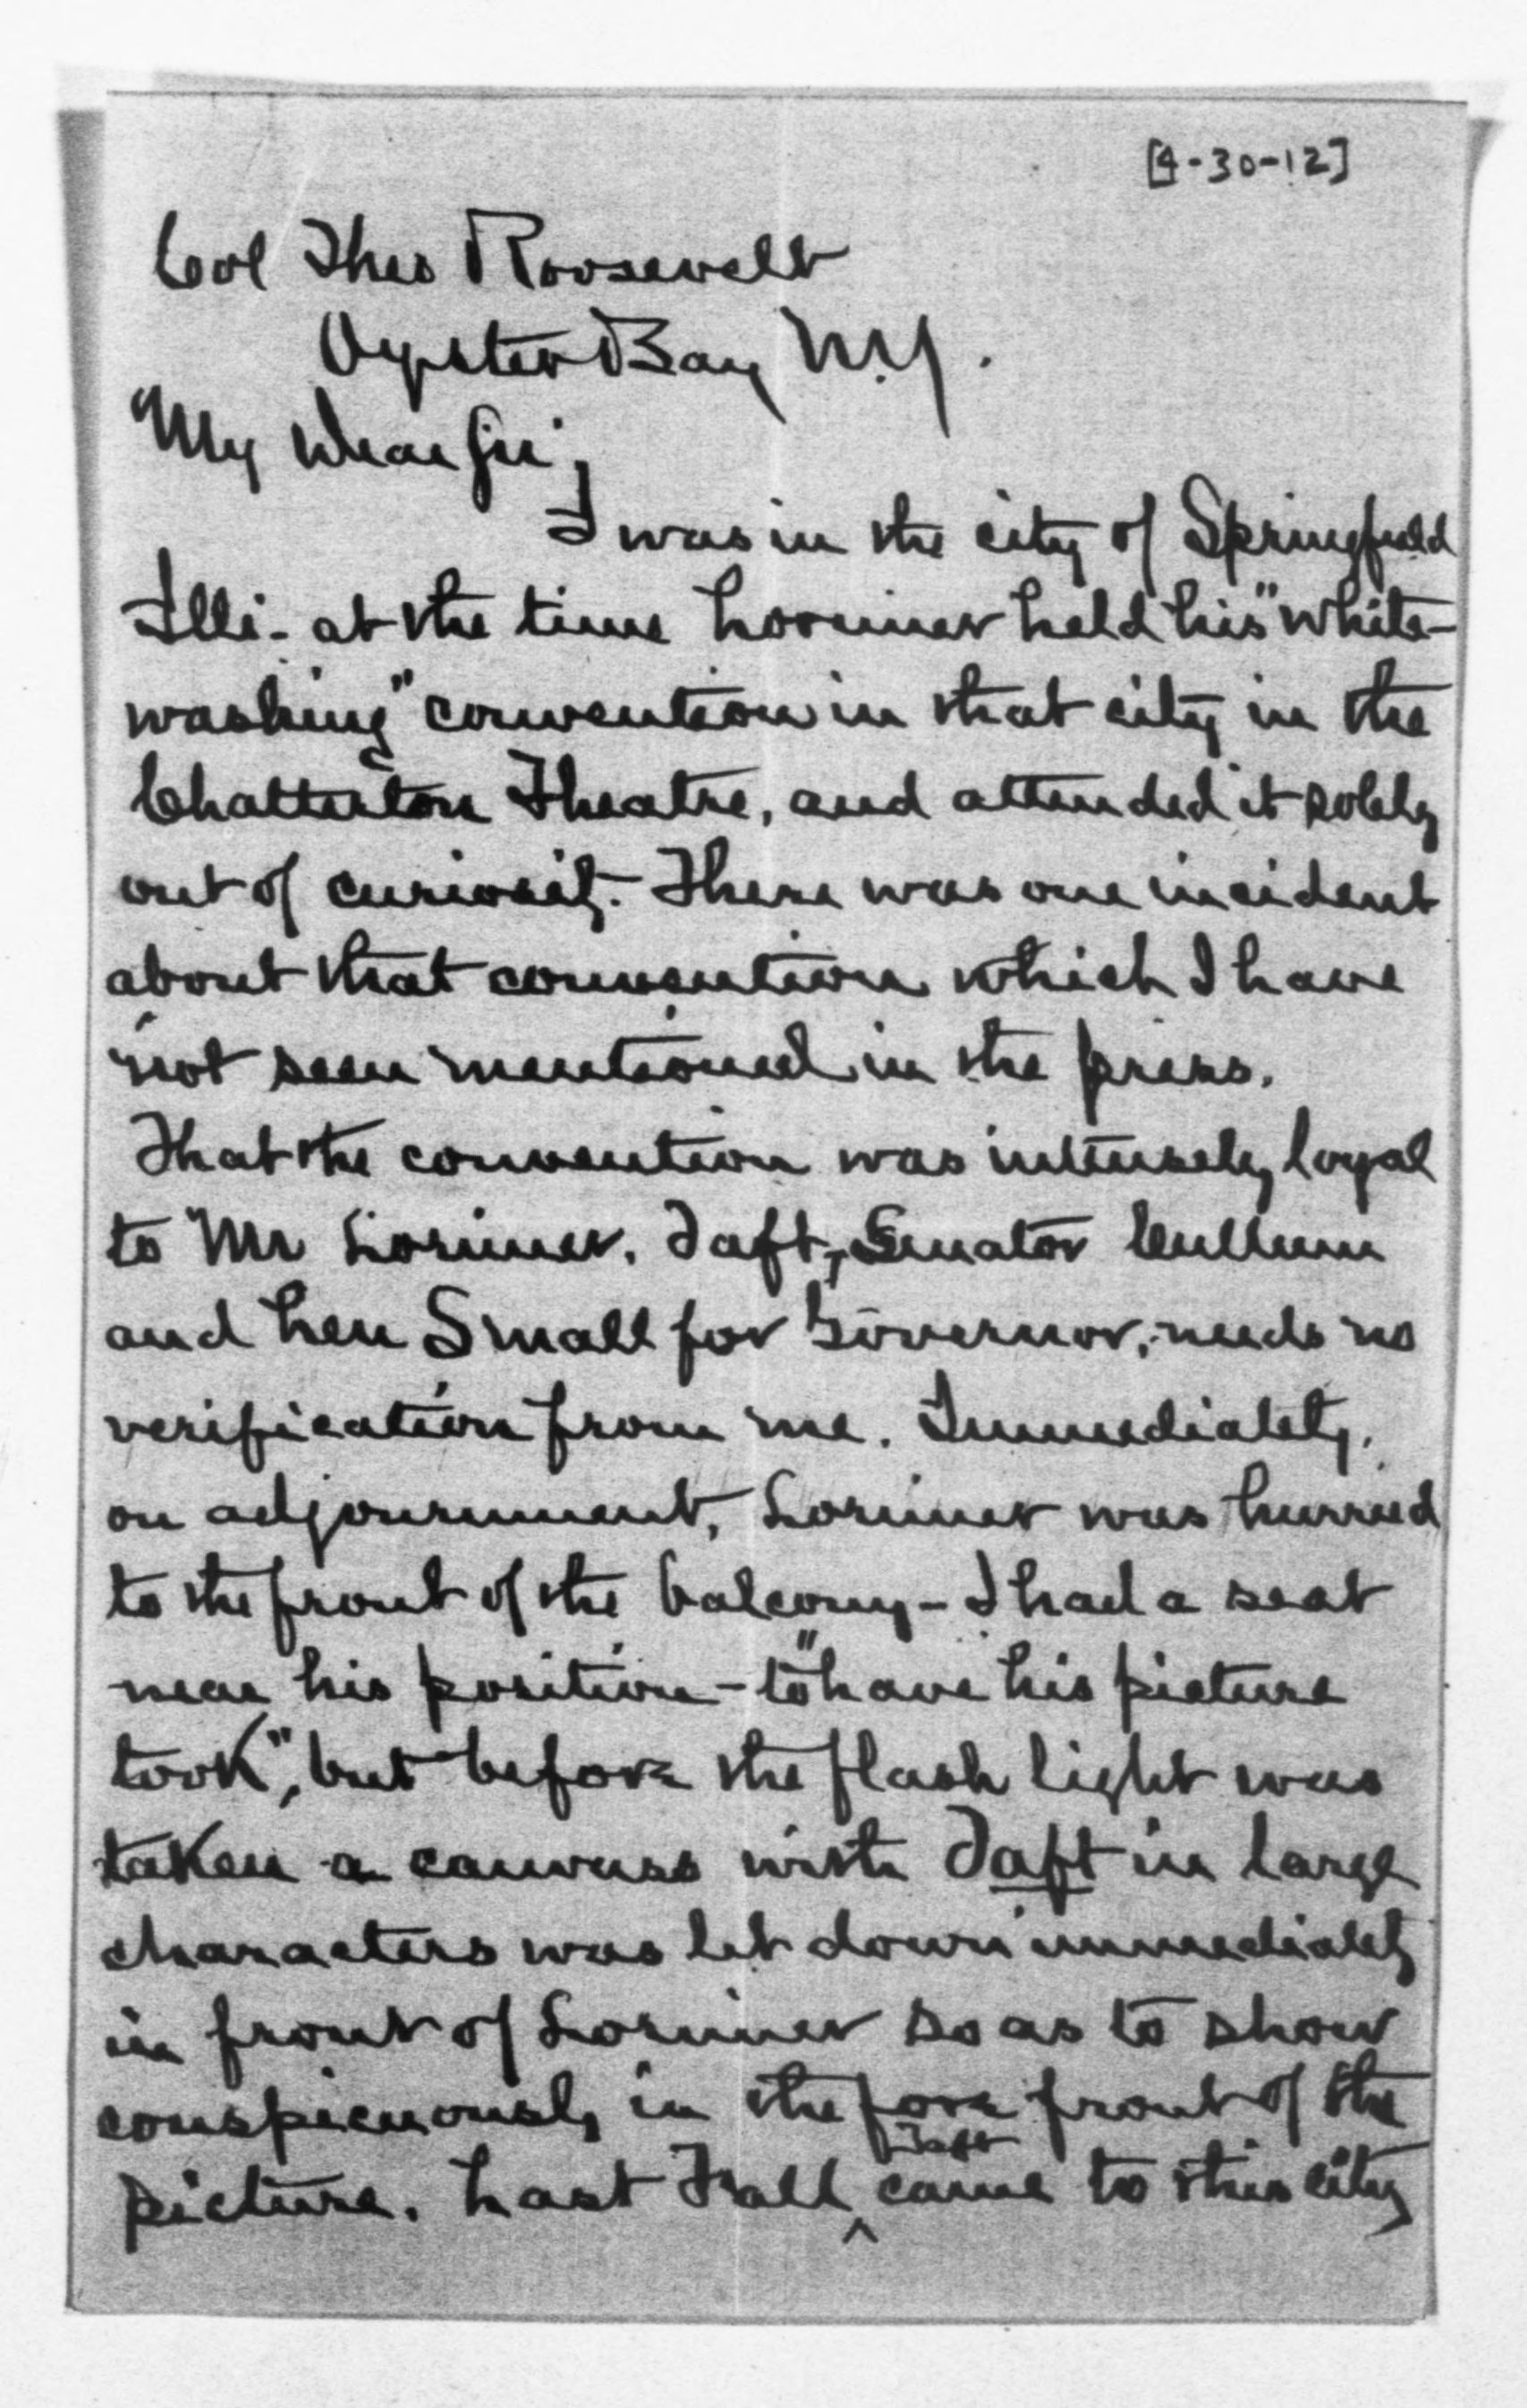 [4-30-12]
Col Theo Roosevelt
Oyster Bay N.Y.
My Dear Sir;
I was in the city of Springfield
Illi- at the time Lorimer held his "white-
washing" convention in that city in the
Chatterton Theatre, and attended it solely
out of curiosity. There was one incident
about that convention which I have
not seen mentioned in the press.
That the convention was intensely loyal
to Mr Lorimer, Taft, Senator Cullum
and Len Small for Governor, needs no
verification from me. Immediately,
on adjournment, Lorimer was hurried
to the front of the balcony - I had a seat
near his position - to "have his picture
took", but before the flash light was
taken a canvass with Taft in large
characters was let down immediately
in front of Lorimer so as to show
conspicuously in the fore front of the
picture. Last Fall ^Taft came to this city